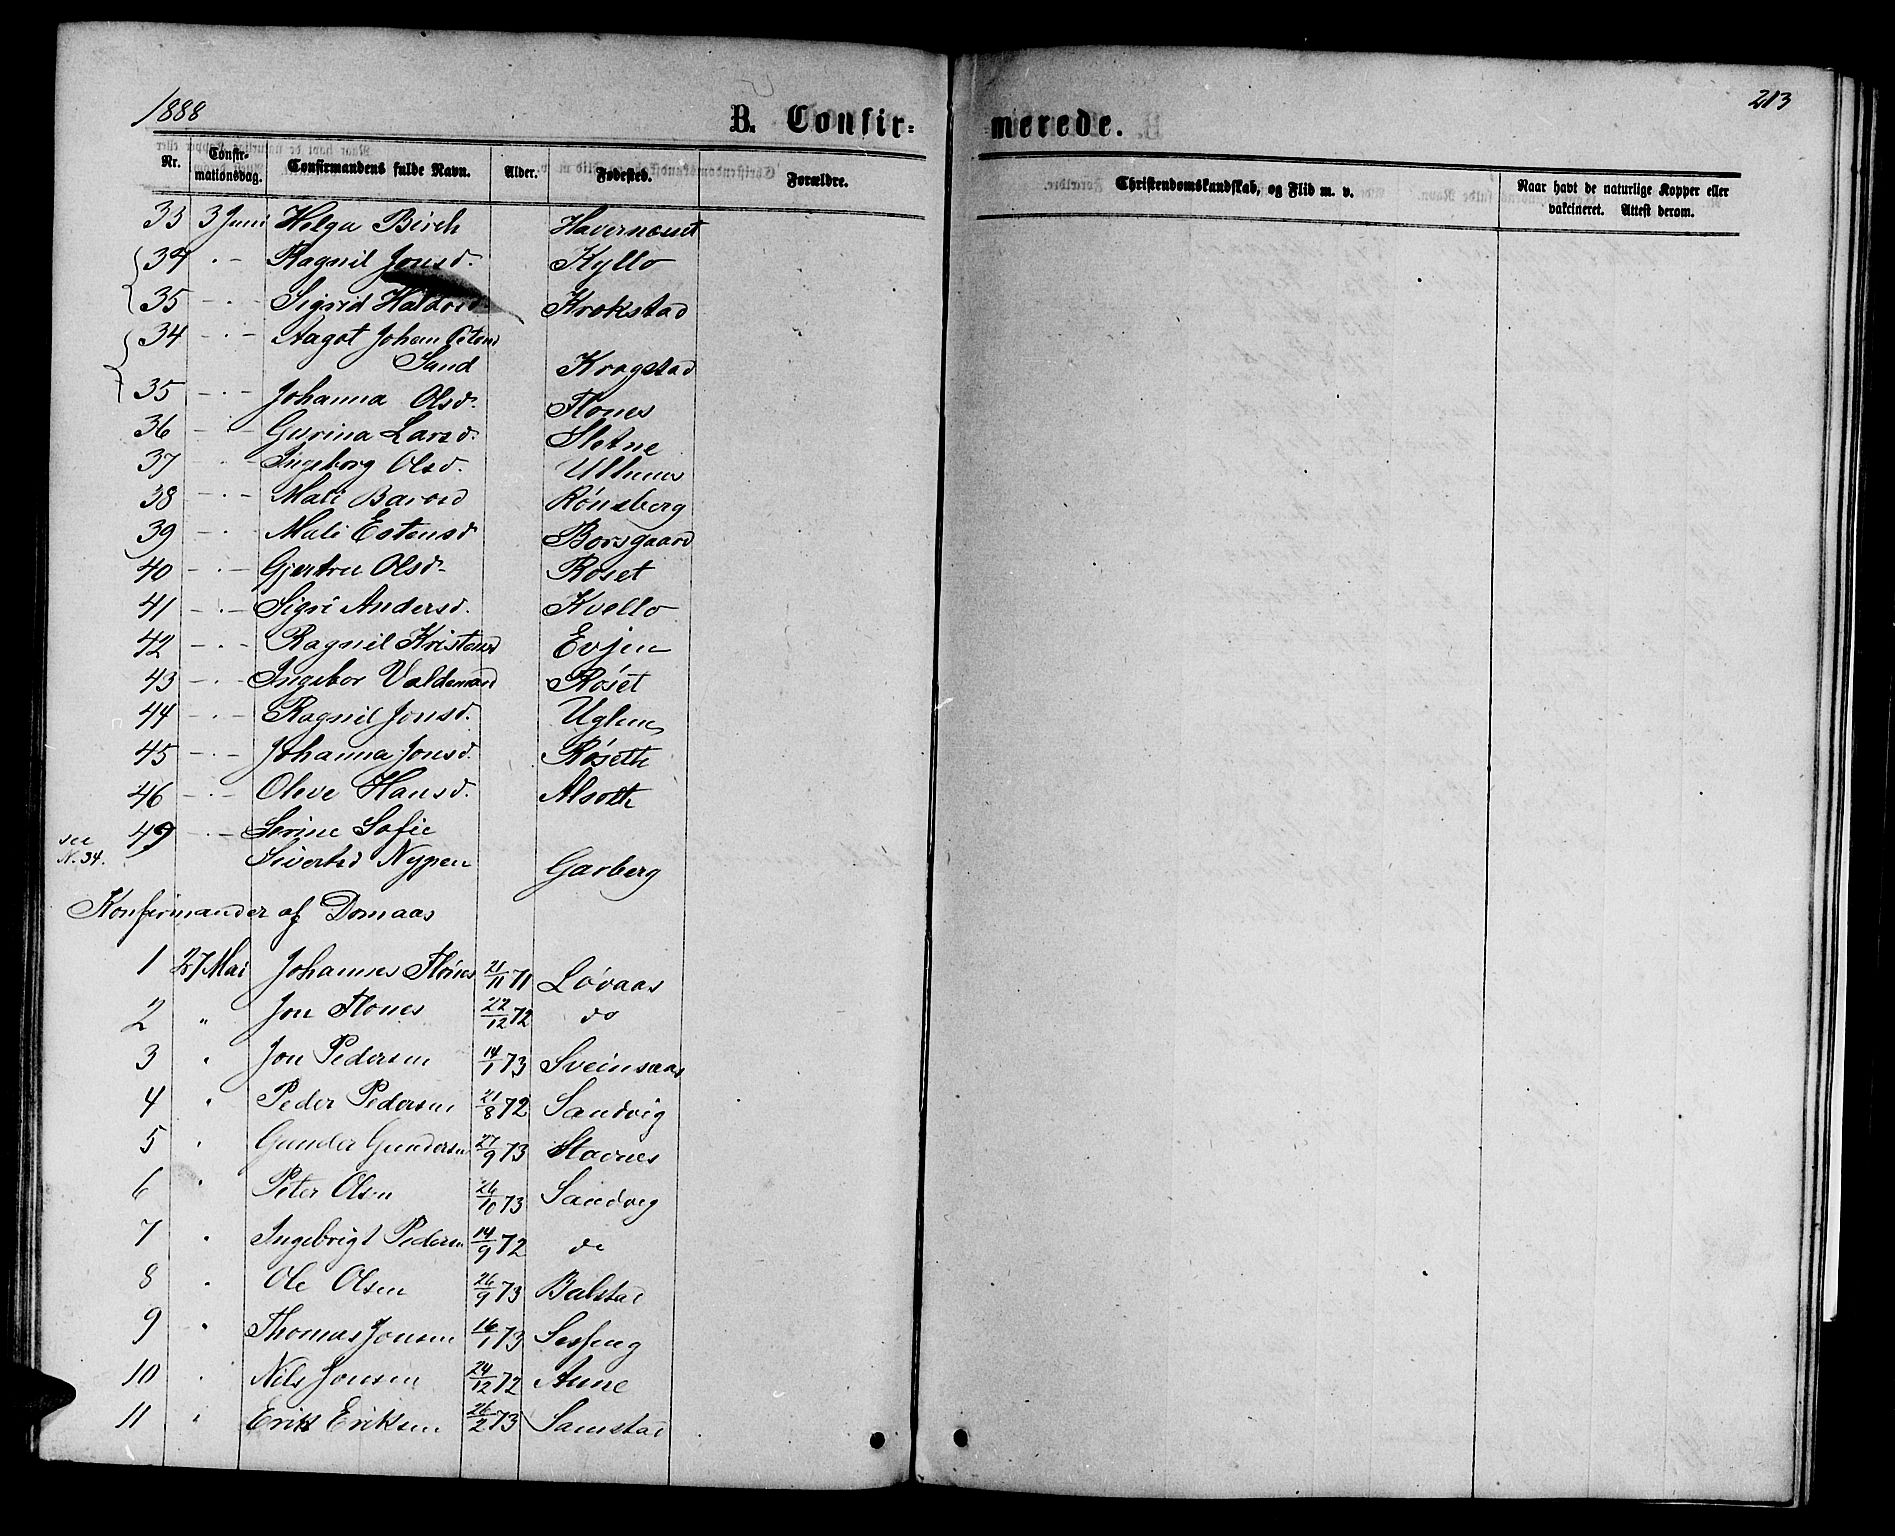 1888
213
B. Confir-
merede.
Nr. Confir-mationsdag. Confirmandens fulde Navn. Alder. Fødested. Forældre. Christendomskundskab, og Flid m. v. Naar havt de naturlige Kopper eller vakcineret. Attest derom.
33 3 Juni Helga Birch Havernæset
34 " - Ragnil Jonsd. Kyllo
35 - " - Sigrid Haldosd Krokstad
34 - " - Aagot Johan Petersd
Sand Krogstad
35 - " - Johanna Olsd. Flones
36 - " - Gurina Larsd. Sletne
37 " - Ingeborg Olsd.
38 - " - Mali Barosd Rønsberg
39 - " Mali Estensd Borsgaard
40 - " - Gjertru Olsd- Røset
41 - " - Sigri Andersd. Kvello
42 - " - Ragnil Kristensd Evjen
43 - " - Ingebor Valdemard Røset
44 - " - Ragnil Jonsd. Uglem
45 - " - Johanna Jonsd. Røseth
46 - " - Oleve Hansd. Alseth
see N. 34. 49 " - Serine Sofie
Sivertsd Nypen Garberg
Konfirmander af Domaas
1 27 Mai Johannes Flønes 21/11 71 Løvaas
2 " Jon Flones 22/12 72 do
3 " Jon Pedersen 14/1 73 Sveinsaas
4 " Peder Pedersen 21/8 72 Sandvig
5 " Gunder Gundersen 27/9 73 Stavnes
6 " Peter Olsen 26/10 73 Sandvig
7 " Ingebrigt Pedersen 14/9 72 do
8 " Ole Olsen 26/9 73 Balstad
9 " Thomas Jonsen 16/1 73 Sesseng
10 " Nils Jonsen 24/12 72 Aune
11 " Erik Eriksen 26/2 73 Samstad